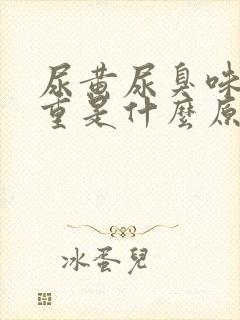 尿黄尿臭味
重是什麼原
冰蛋兒